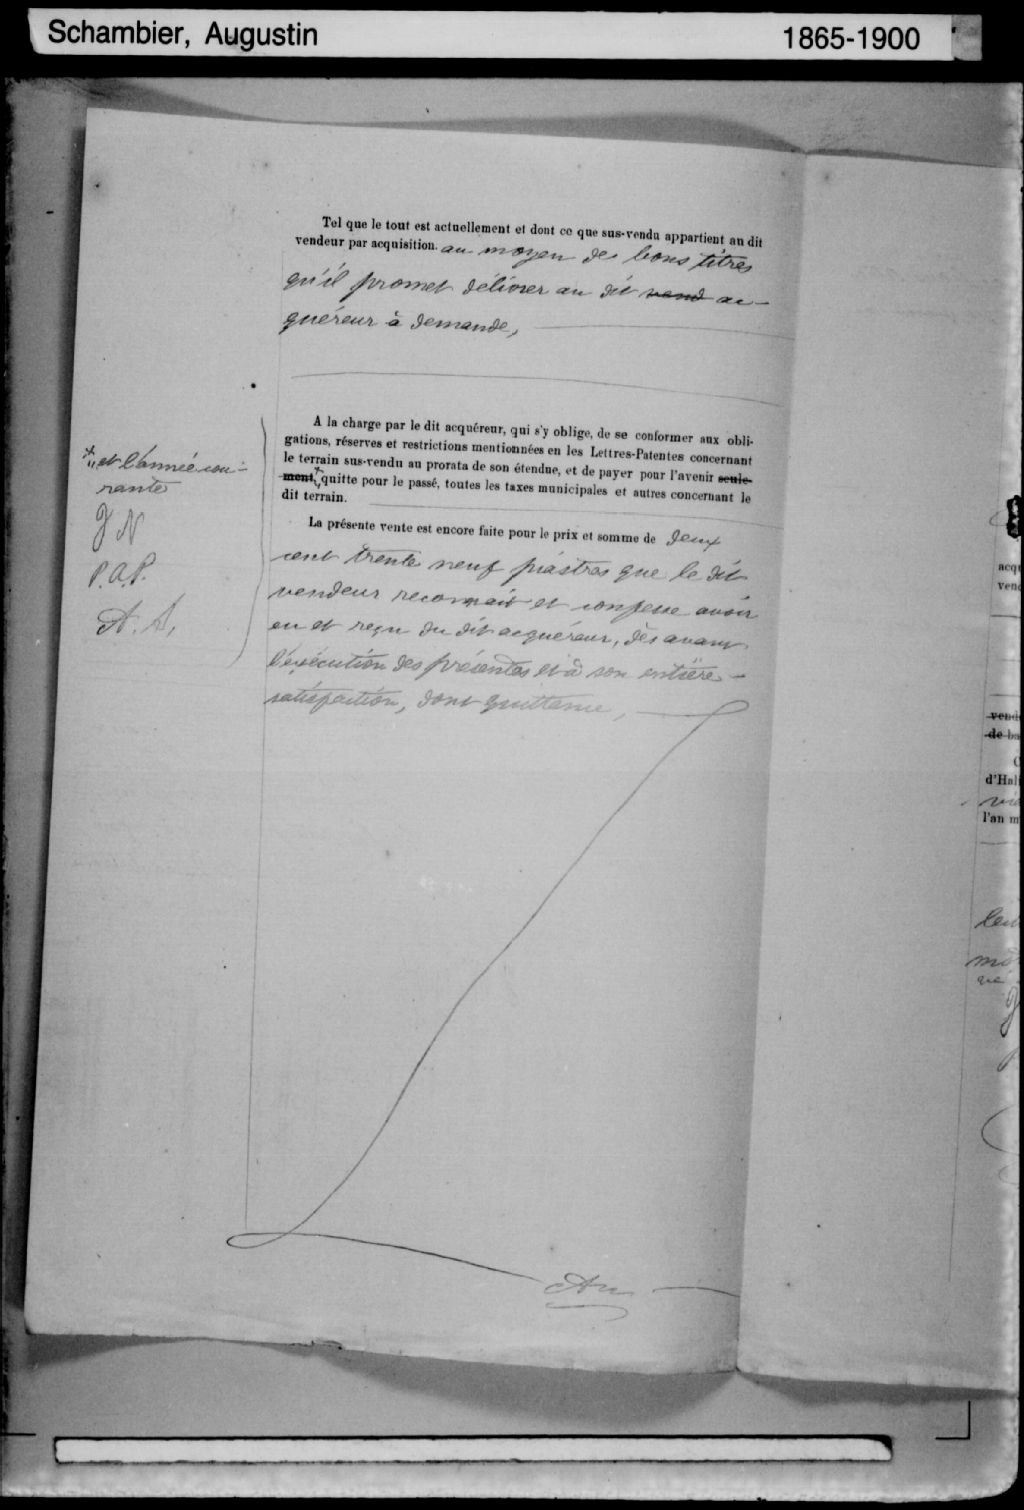 Schambier, Augustin
1865-1900
Tel que le tout est actuellement et dont ce que sus-vendu appartient au dit
vendeur par acquisition. au moyen des bons titres
qu'il promet délivrer au dit vend ac-
quéreur à demande,
A la charge par le dit acquéreur, qui s'y oblige, de se conformer aux obli-
gations, réserves et restrictions mentionnées en les Lettres-Patentes concernant
le terrain sus-vendu au prorata de son étendue, et de payer pour l'avenir seule-
ment, quitte pour le passé, toutes les taxes municipales et autres concernant le
dit terrain.
La présente vente est encore faite pour le prix et somme de deux
cent trente neuf piastres que le dit
vendeur reconnait et confesse avoir
eu et reçu du dit acquéreur, dès avant
l'exécution des présentes et à son entière
satisfaction, dont quittance,
* " et l'année cou-
rante
J N
P.A.P.
A. S.
acqu
vend
vend
de ba
C
d'Hali
vie
l'an m